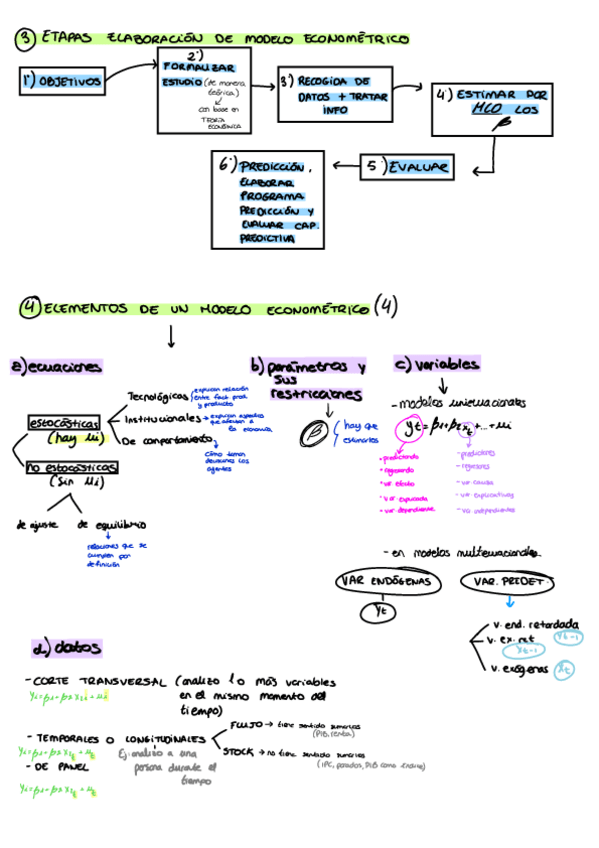 3 ETAPAS ELABORACIÓN DE MODELO ECONOMÉTRICO
1º) OBJETIVOS
2º) FORMALIZAR
ESTUDIO (de manera
teórica)
con base en
TEORÍA
ECONÓMICA
3) RECOGIDA DE
DATOS + TRATAR
INFO
4) ESTIMAR POR
MCO LOS
β
5) EVALUAR
6) PREDICCIÓN,
ELABORAR
PROGRAMA
PREDICCIÓN Y
EVALUAR CAP.
PREDICTIVA
4 ELEMENTOS DE UN MODELO ECONOMÉTRICO (4)
a) ecuaciones
estocásticas
(hay ui)
Tecnológicas explican relación
entre fact prod
y producto
Institucionales → explican aspectos
que afectan a
la economía
De comportamiento
Cómo toman
decisiones los
agentes
no estocásticas
(sin ui)
de ajuste
de equilibrio
relaciones que se
cumplen por
definición
b) parámetros y
sus
restricciones
β
hay que
estimarlos
c) variables
- modelos uniecuacionales
yt = β1 + β2xt + ... + ui
• predictando
• regresando
• var efecto
• var explicada
• var dependiente
- predictores
- regresores
- var. causa
- var. explicativas
- var independientes
- en modelos multiecuacionales
VAR ENDÓGENAS
yt
VAR. PREDET.
v. end. retardada
yt-1
v. ex. ret
xt-1
v. exógenas xt
d) datos
- CORTE TRANSVERSAL (analizo 1 o más variables
en el mismo momento del
tiempo)
yi = β1 + β2x2i + ui
- TEMPORALES O LONGITUDINALES
yt = β1 + β2xt + ut
Ej: analizo a una
persona durante el
tiempo
FLUJO → tiene sentido sumarlas
(PIB, renta)
STOCK → no tiene sentido sumarlas
(IPC, parados, PIB como índice)
- DE PANEL